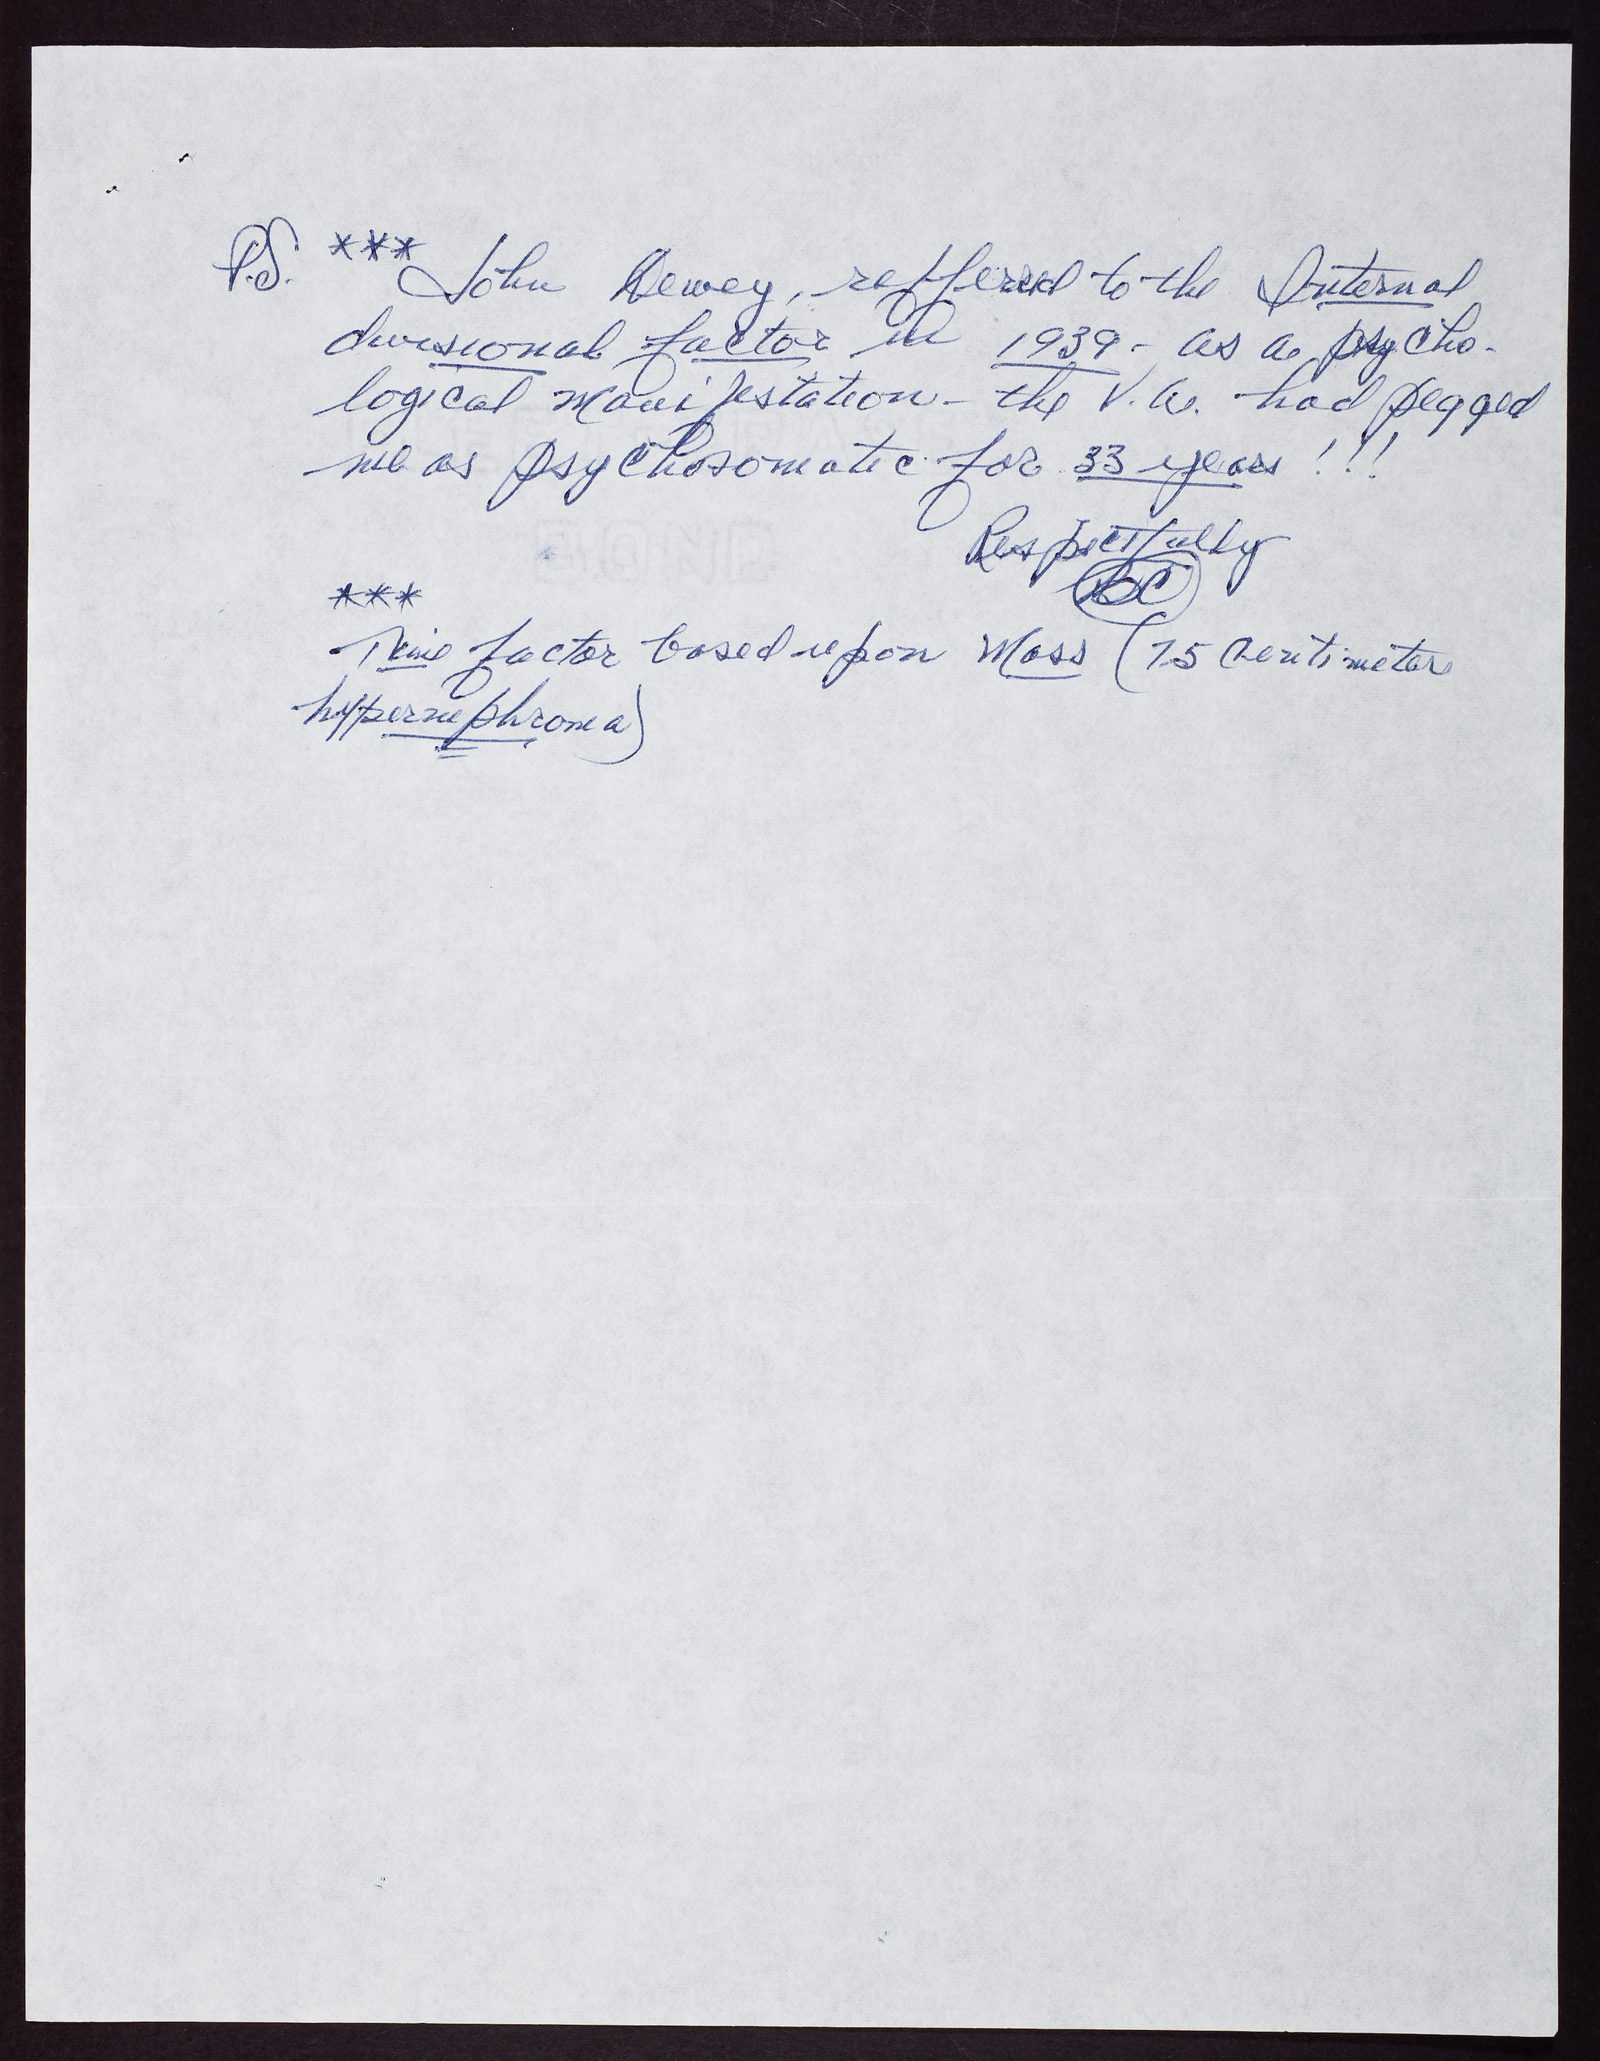 P.S. *** John Dewey, reffered to the Internal
divisional factor in 1939 - as a psycho-
logical manifestation - the V.A. had pegged
me as psychosomatic for 33 years !!!
Respectfully
***
Time factor based upon Mass (75 Centimeter
hypernephroma)